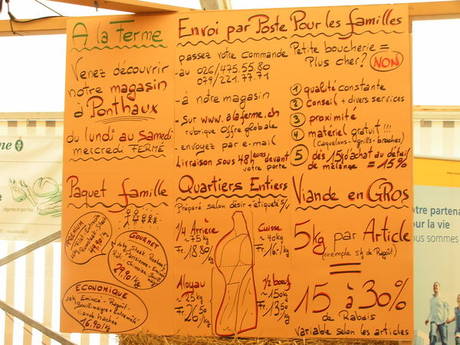 A la Ferme
Venez découvrir
notre magasin
à Ponthaux
du lundi au samedi
mercredi FERMÉ
Envoi par Poste
passez votre commande
- au 026/475.55.80
079/221.77.71
- à notre magasin
- sur www.alaferme.ch
rubrique offre globale
- envoyez par e-mail
Livraison sous 48 heures devant
votre porte
Pour les familles
Petite boucherie =
Plus cher? NON
1 qualité constante
2 Conseil + divers services
3 proximité
4 matériel gratuit!!!
(caquelons-grills-broches)
5 dès 15kg d'achat au détail
de mélange = - 15%
Paquet famille
PREMIER
GOURMET
29.90/kg
ECONOMIQUE
16.90/kg
Quartiers Entiers
Préparé selon désir + étiqueté
1/4 Arrière
~75kg
Fr 18.80/kg
Cuisse
Fr 16./kg
Aloyau
Fr 26.50/kg
1/2 bœuf
~150kg
Viande en GROS
5kg par Article
(exemple 5kg de Ragoût)
15 à 30%
de Rabais
variable selon les articles
Notre partena
pour la vie
ous sommes